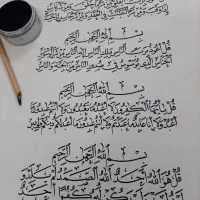 بسم الله الرحمن الرحيم
قل أعوذ برب الناس ملك الناس إله الناس من شر الوسواس
الخناس الذي يوسوس في صدور الناس من الجنة والناس
بسم الله الرحمن الرحيم
قل يا أيها الكافرون لا أعبد ما تعبدون ولا أنتم عابدون ما
أعبد ولا أنا عابد ما عبدتم ولا أنتم عابدون ما أعبد لكم دينكم ولي دين
بسم الله الرحمن الرحيم
قل هو الله أحد الله الصمد لم يلد
ولم يولد ولم يكن له كفوا أحد